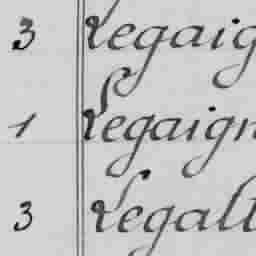 3 Legaig
1 Legaign
3 Legalt